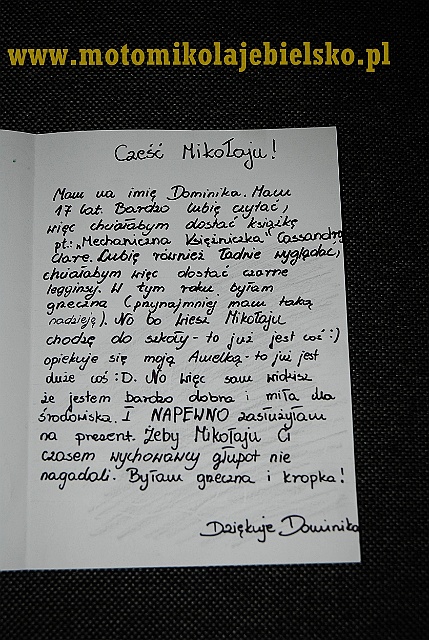 www.motomikolajebielsko.pl
Cześć Mikołaju!
Mam na imię Dominika. Mam
17 lat. Bardzo lubię czytać,
więc chciałabym dostać książkę
pt.: „Mechaniczna Księżniczka" Cassandry
Clare. Lubię również ładnie wyglądać,
chciałabym więc dostać czarne
legginsy. W tym roku byłam
grzeczna (przynajmniej mam taką
nadzieję). No bo wiesz Mikołaju
chodzę do szkoły - to już jest coś :)
opiekuje się moją Amelką - to już jest
duże coś :D. No więc sam widzisz
że jestem bardzo dobra i miła dla
środowiska. I NAPEWNO zasłużyłam
na prezent. Żeby Mikołaju Ci
czasem wychowawcy głupot nie
nagadali. Byłam grzeczna i kropka!
Dziękuje Dominika